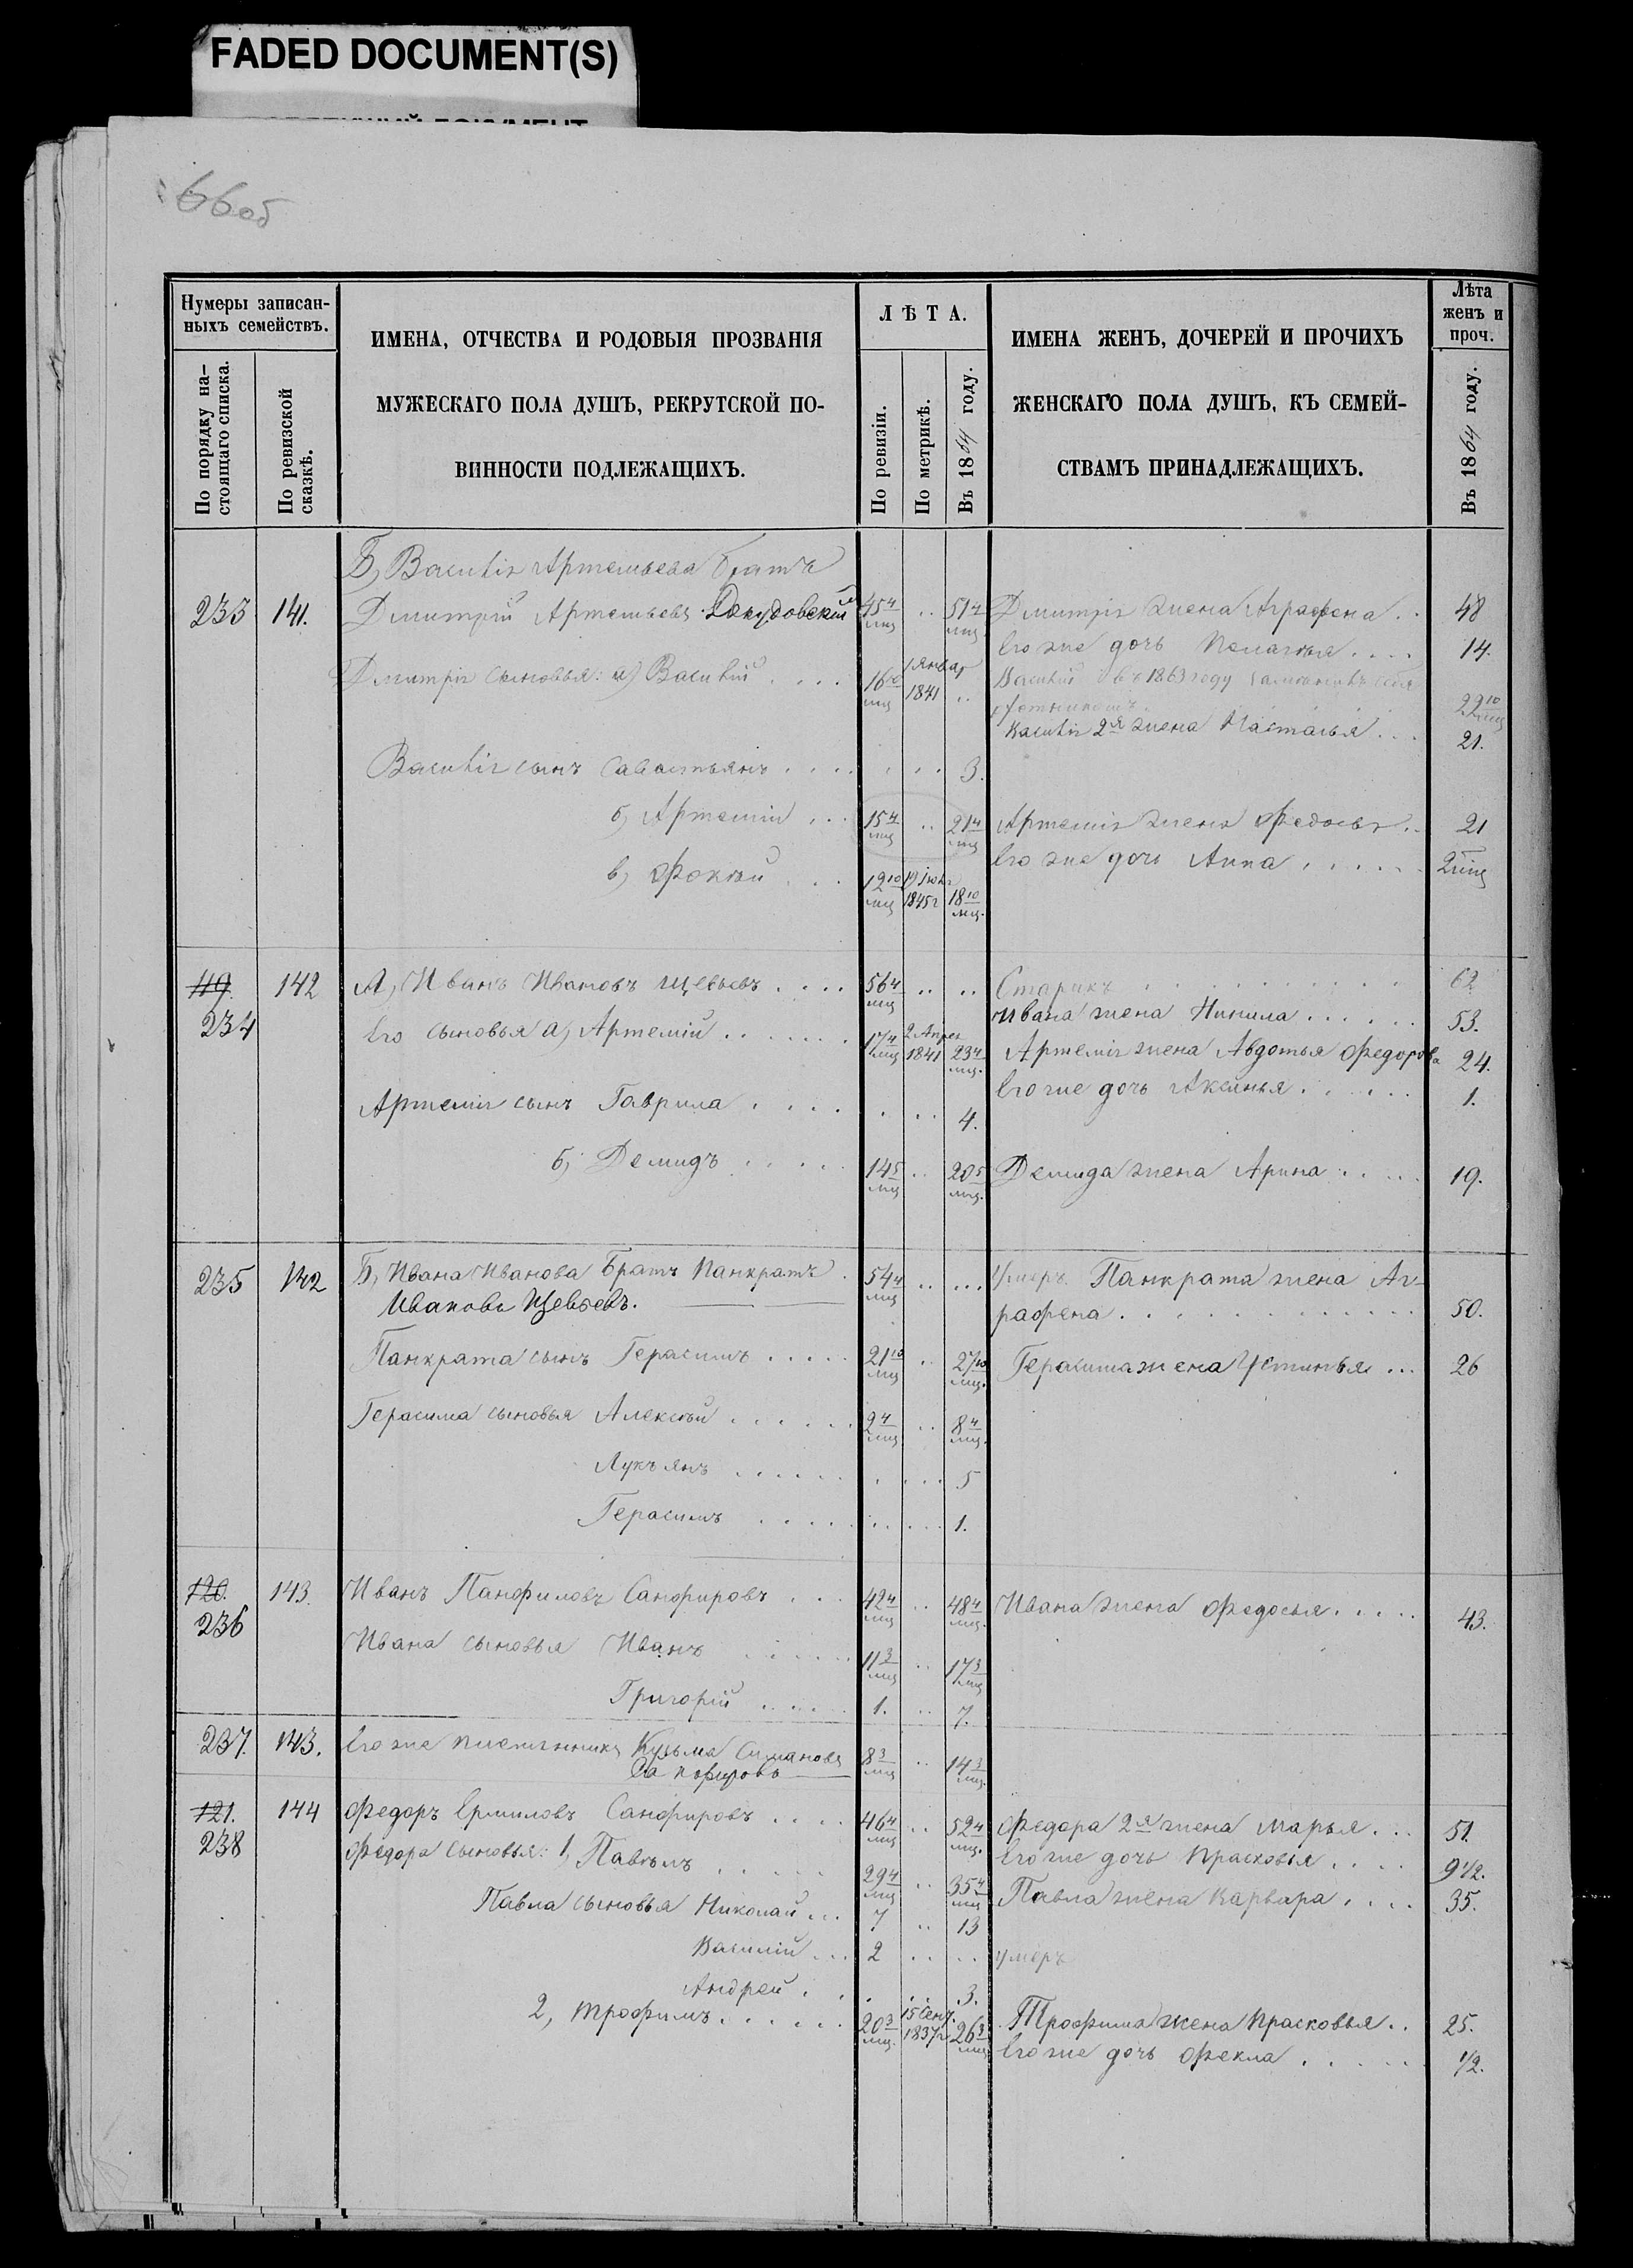 FADED DOCUMENT(S)
66об
Нумеры записан-
ныхъ семействъ.
По порядку на-
стоящаго списка.
По ревизской
сказкѣ.
ИМЕНА, ОТЧЕСТВА И РОДОВЫЯ ПРОЗВАНІЯ
МУЖЕСКАГО ПОЛА ДУШЪ, РЕКРУТСКОЙ ПО-
ВИННОСТИ ПОДЛЕЖАЩИХЪ.
ЛѢТА.
По ревизіи.
По метрикѣ.
Въ 1864 году.
ИМЕНА ЖЕНЪ, ДОЧЕРЕЙ И ПРОЧИХЪ
ЖЕНСКАГО ПОЛА ДУШЪ, КЪ СЕМЕЙ-
СТВАМЪ ПРИНАДЛЕЖАЩИХЪ.
Лѣта
женъ и
проч.
Въ 1864 году.
Б, Василія Артемьева братъ
233 141. Дмитрій Артемьевъ Докудовскій 45 4/мц .. 51 4/мц Дмитрія жена Аграфена .. 48
Его же дочь Пелагея .... 14.
Дмитрія сыновья: а) Василій .... 16 10/мц 1 Январ 1841 .. Василій въ 1863 году
22 10/мц
Василія 2я жена Настасья ... 21.
Василія сынъ Савастьянъ .... . .. 3.
б, Артемій ... 15 4/мц .. 21 4/мц Артемія жена Федосья .. 21
Его же дочь Анна ......
в, Фокѣй ... 12 10/мц 1845г 18 10/мц.
119. 142 А, Иванъ Ивановъ Щевьевъ .... 56 4/мц .. .. Старикъ 62
234 Ивана жена Нинила ...... 53.
Его сыновья а, Артемій ....... 17 4/мц 2 Апрел 1841 23 4/мц. Артемія жена Авдотья Федорова 24.
Его же дочь Аксинья ...... 1.
Артемія сынъ Гаврила .... . .. 4.
б, Демидъ ..... 14 5/мц .. 20 5/мц. Демида жена Арина ..... 19.
235 142 Б, Ивана Иванова Братъ Панкратъ . 54 4/мц .. ... Умеръ. Панкрата жена Аг-
Ивановъ Щевьевъ.
рафена ............ 50.
Панкрата сынъ Герасимъ ..... 21 10/мц .. 27 10/мц. Герасима жена Устинья ... 26
Герасима сыновья Алексѣй ...... 2 4/мц .. 8 4/мц.
Лукъянъ ...... . ... 5
Герасимъ ..... .. ... 1.
120. 143. Иванъ Панфиловъ Санфировъ ... 42 4/мц .. 48 4/мц. Ивана жена Федосья ..... 43.
236
Ивана сыновья Иванъ ..... 11 3/мц .. 17 3/мц
Григорій .... 1. .. 7.
237. 143. Его же племянникъ Кузьма Симановъ 8 3/мц .. 14 3/мц.
Санфировъ
121. 144 Федоръ Ермиловъ Санфировъ .... 46 4/мц .. 52 4/мц. Федора 2я жена Марья ... 51.
238 Его же дочь Прасковія .... 9 1/2.
Федора сыновья: 1, Павелъ ..... 29 4/мц .. 35 4/мц Павла жена Варвара .... 35.
Павла сыновья Николай ... 7 .. 13
Василій ... 2 .. .. умеръ
Андрей .. . .. 3.
2, Трофимъ ...... 20 3/мц. 15 Сент. 1837г 26 3/мц Трофима жена Прасковья .. 25.
Его же дочь Фекла ...... 1/2.